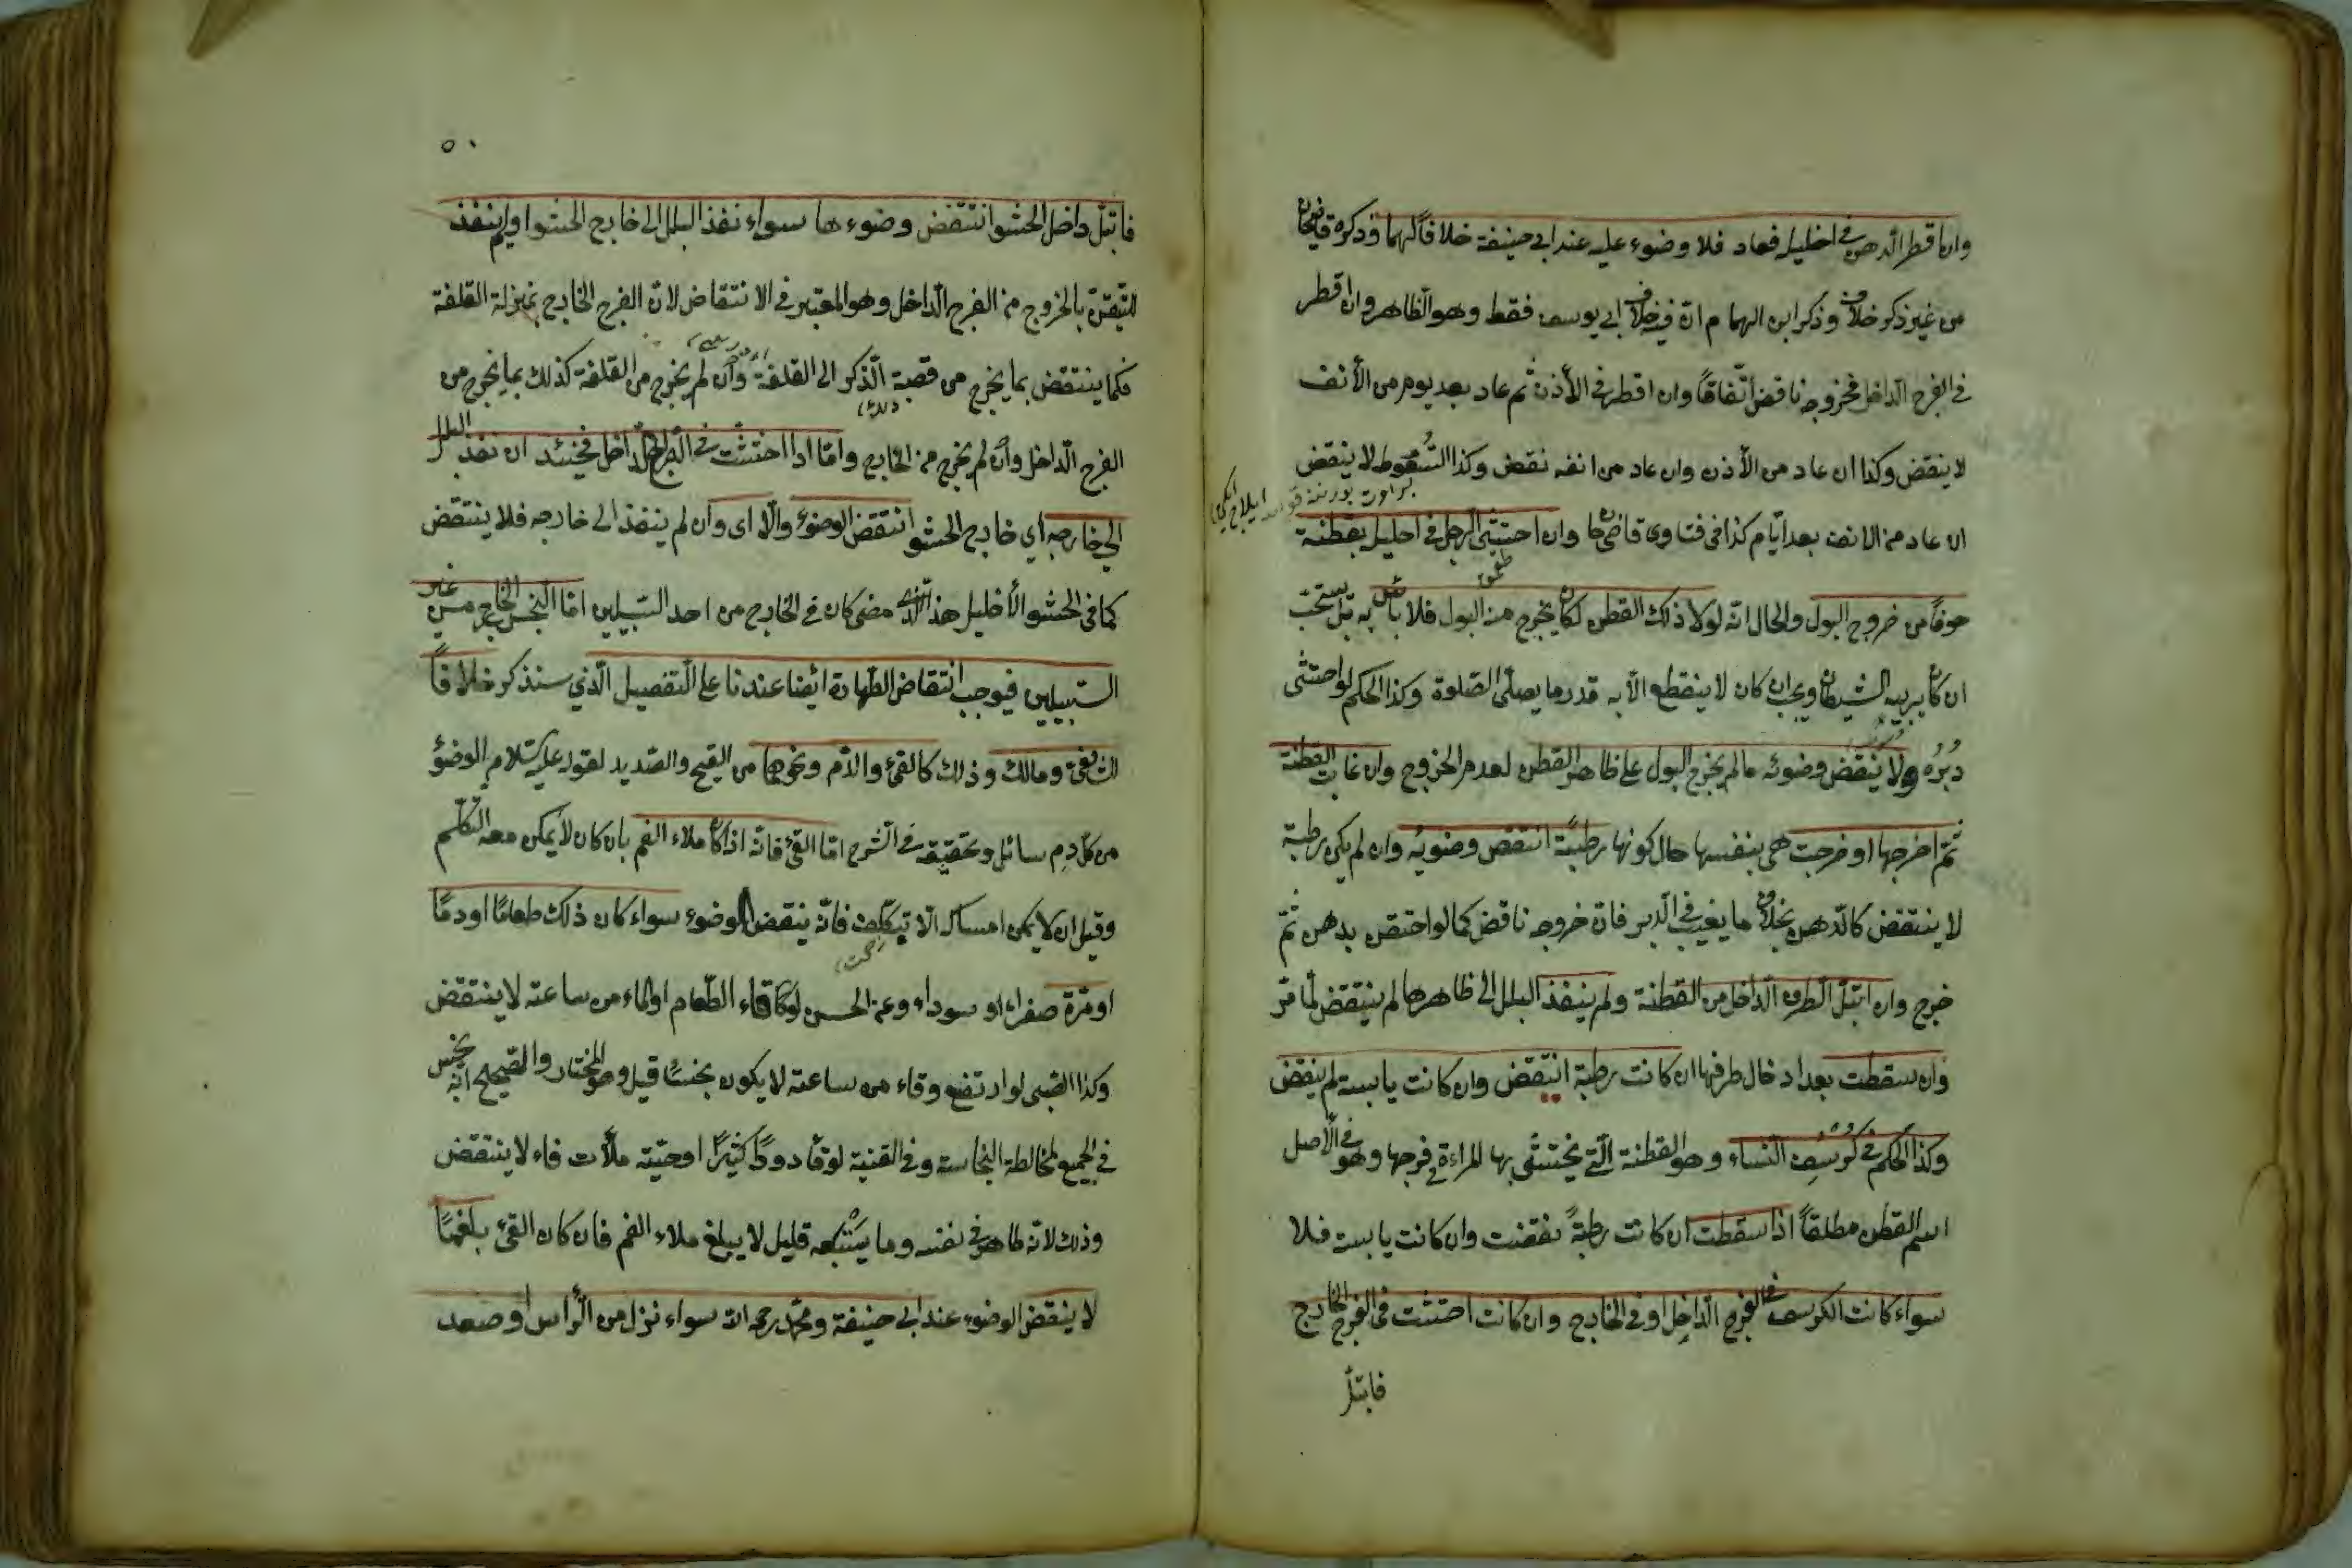 وان اقطر الدهن في احليله فعاد فلا وضوء عليه عند ابي حنيفة خلافاً لهما وذكره قاضيخان
من غير ذكر خلاف وذكر ابن الهمام انّ فيه خلاف ابي يوسف فقط وهو الظاهر وان اقطر
في الفرج الداخل فخروجه ناقض اتّفاقاً وان اقطر في الأذن ثم عاد بعد يوم من الأنف
لا ينقض وكذا ان عاد من الأذن وان عاد من انفه نقض وكذا السُّعوط لا ينقض
ان عاد من الانف بعد ايّام كذا في فتاوى قاضيخان وان احتشى الرجل في احليله بقطنة
خوفاً من خروج البول والحال انّه لولا ذلك القطن لكان يخرج منه البول فلا بأس به بل يستحبّ
ان كان يريبه الشيطان ويجب ان كان لا ينقطع الّا به قدر ما يصلّى الصّلوة وكذا الحكم لو احتشى
دُبُرُه ولا ينقض وضوئه ما لم يخرج البول على ظاهر القطن لعدم الخروج وان غابت القطنة
ثمّ اخرجها او خرجت هي بنفسها حال كونها رطبةً انتقض وضوئه وان لم يكن رطبة
لا ينتقض كالدّهن بخلاف ما يغيب في الدّبر فانّ خروجه ناقض كما لو احتقن بدهن ثمّ
خرج وان ابتلّ الطرف الدّاخل من القطنة ولم ينفذ البلل الى ظاهرها لم ينتقض لما مرّ
وان سقطت بعد ادخال طرفها ان كانت رطبة انتقض وان كانت يابسة لم ينقض
وكذا الحكم في كُرْسُفِ النّساء وهو القطنة الّتي يحتشى بها المراءة في فرجها وهو في الأصل
اسم القطن مطلقاً اذا سقطت ان كانت رطبةً نقضت وان كانت يابسة فلا
سواء كانت الكرسف في الفرج الدّاخل او في الخارج وان كانت احتشت في الفرج الخارج
فابتلّ
٥٠
فابتلّ داخل الحشو انتقض وضوءها سواء نفذ البلل الى خارج الحشو او لم ينفذ
للتّيقّن بالخروج من الفرج الدّاخل وهو المعتبر في الانتقاض لانّ الفرج الخارج بمنزلة القلفة
فكما ينتقض بما يخرج من قصبة الذّكر الى القلفة وان لم يخرج من القلفة كذلك بما يخرج من
الفرج الدّاخل وان لم يخرج من الخارج وامّا اذا احتشت في الفرج الدّاخل فحينئذ ان نفذ البلل
الى خارجه اي خارج الحشو انتقض الوضوء والّا اى وان لم ينفذ الى خارجه فلا ينتقض
كما في الحشو الأحليل هذا الّذى مضى كان في الخارج من احد السّبيلين امّا النّجس الخارج من غير
السّبيلين فيوجب انتقاض الطّهارة ايضا عندنا على التّفصيل الّذي سنذكر خلافاً
للشافعى ومالك وذلك كالقئ والدّم ونحوهما من القيح والصّديد لقوله عليه السّلام الوضؤ
من كلّ دم سائل وتحقيقه في الشّرح امّا القئ فانّه اذا كان ملاء الفم بان كان لا يمكن معه التّكلّم
وقيل ان لا يمكن امساكه الّا بتكلّف فانّه ينقض الوضوء سواء كان ذلك طعامًا او دمًا
او مرّة صفراء او سوداء وعن الحسن لو قاء الطّعام او الماء من ساعته لا ينتقض
وكذا الصّبى لو ارتضع وقاء من ساعته لا يكون نجسًا قيل وهو المختار والصّحيح انّه نجس
في الجميع لمخالطة النّجاسة وفي القنية لو قاء دودًا كثيرًا او حيّة ملأت فاه لا ينتقض
وذلك لانّه طاهر في نفسه وما يستتبعه قليل لا يبلغ ملاء الفم فان كان القئ بلغمًا
لا ينقض الوضوء عند ابي حنيفة ومحمّد رحمه الله سواء نزل من الرّاس او صعد